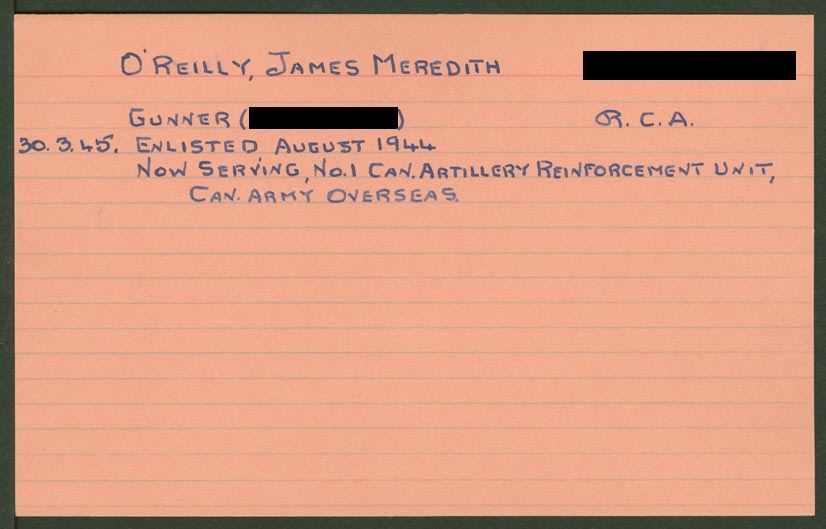 O'REILLY, JAMES MEREDITH
GUNNER ( ) R.C.A.
30.3.45. ENLISTED AUGUST 1944
NOW SERVING, NO.1 CAN. ARTILLERY REINFORCEMENT UNIT,
CAN. ARMY OVERSEAS.